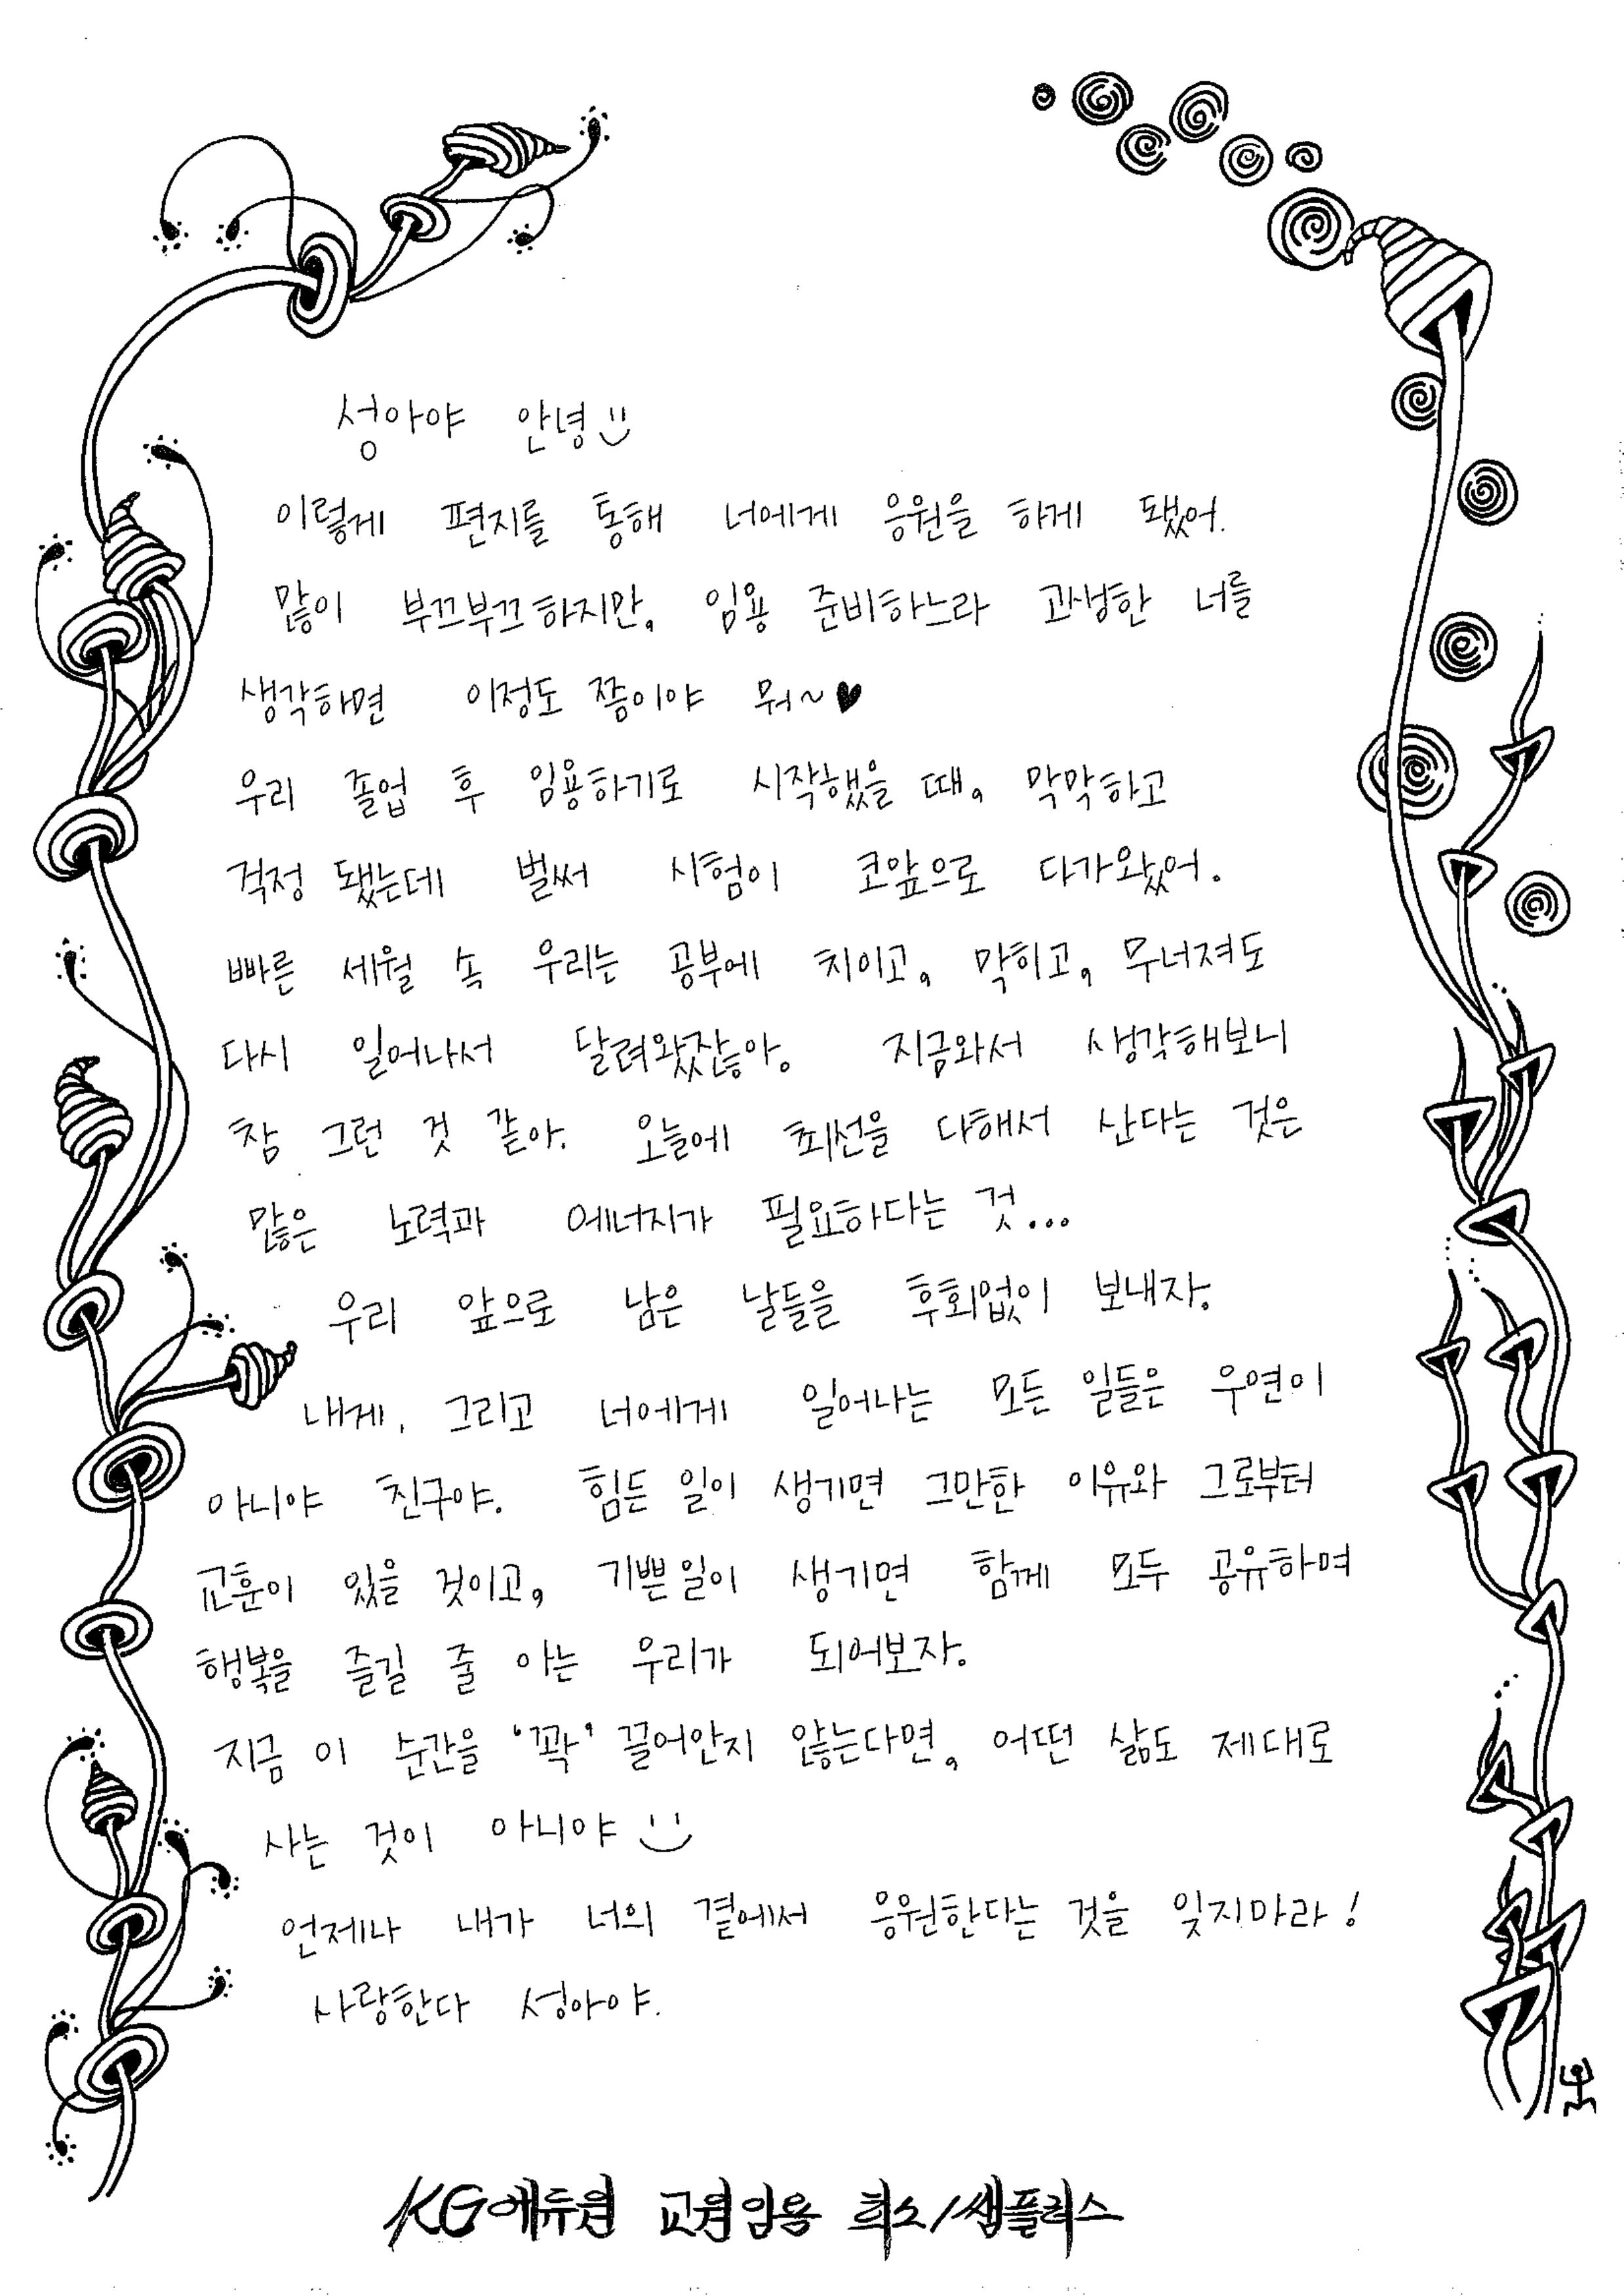 성아야 안녕
이렇게 편지를 통해 너에게 응원을 하게 됐어.
많이 부끄부끄하지만, 임용 준비하느라 고생한 너를
생각하면 이정도 쯤이야 뭐~♥
우리 졸업 후 임용하기로 시작했을 때, 막막하고
걱정 됐는데 벌써 시험이 코앞으로 다가왔어.
빠른 세월 속 우리는 공부에 치이고, 막히고, 무너져도
다시 일어나서 달려왔잖아. 지금와서 생각해보니
참 그런 것 같아. 오늘에 최선을 다해서 산다는 것은
많은 노력과 에너지가 필요하다는 것...
우리 앞으로 남은 날들을 후회없이 보내자.
내게, 그리고 너에게 일어나는 모든 일들은 우연이
아니야 친구야. 힘든 일이 생기면 그만한 이유와 그로부터
교훈이 있을 것이고, 기쁜일이 생기면 함께 모두 공유하며
행복을 즐길 줄 아는 우리가 되어보자.
지금 이 순간을 '꽉' 끌어안지 않는다면, 어떤 삶도 제대로
사는 것이 아니야
언제나 내가 너의 곁에서 응원한다는 것을 잊지마라!
사랑한다 성아야.
KG에듀원 교원임용 희소/쌤플러스